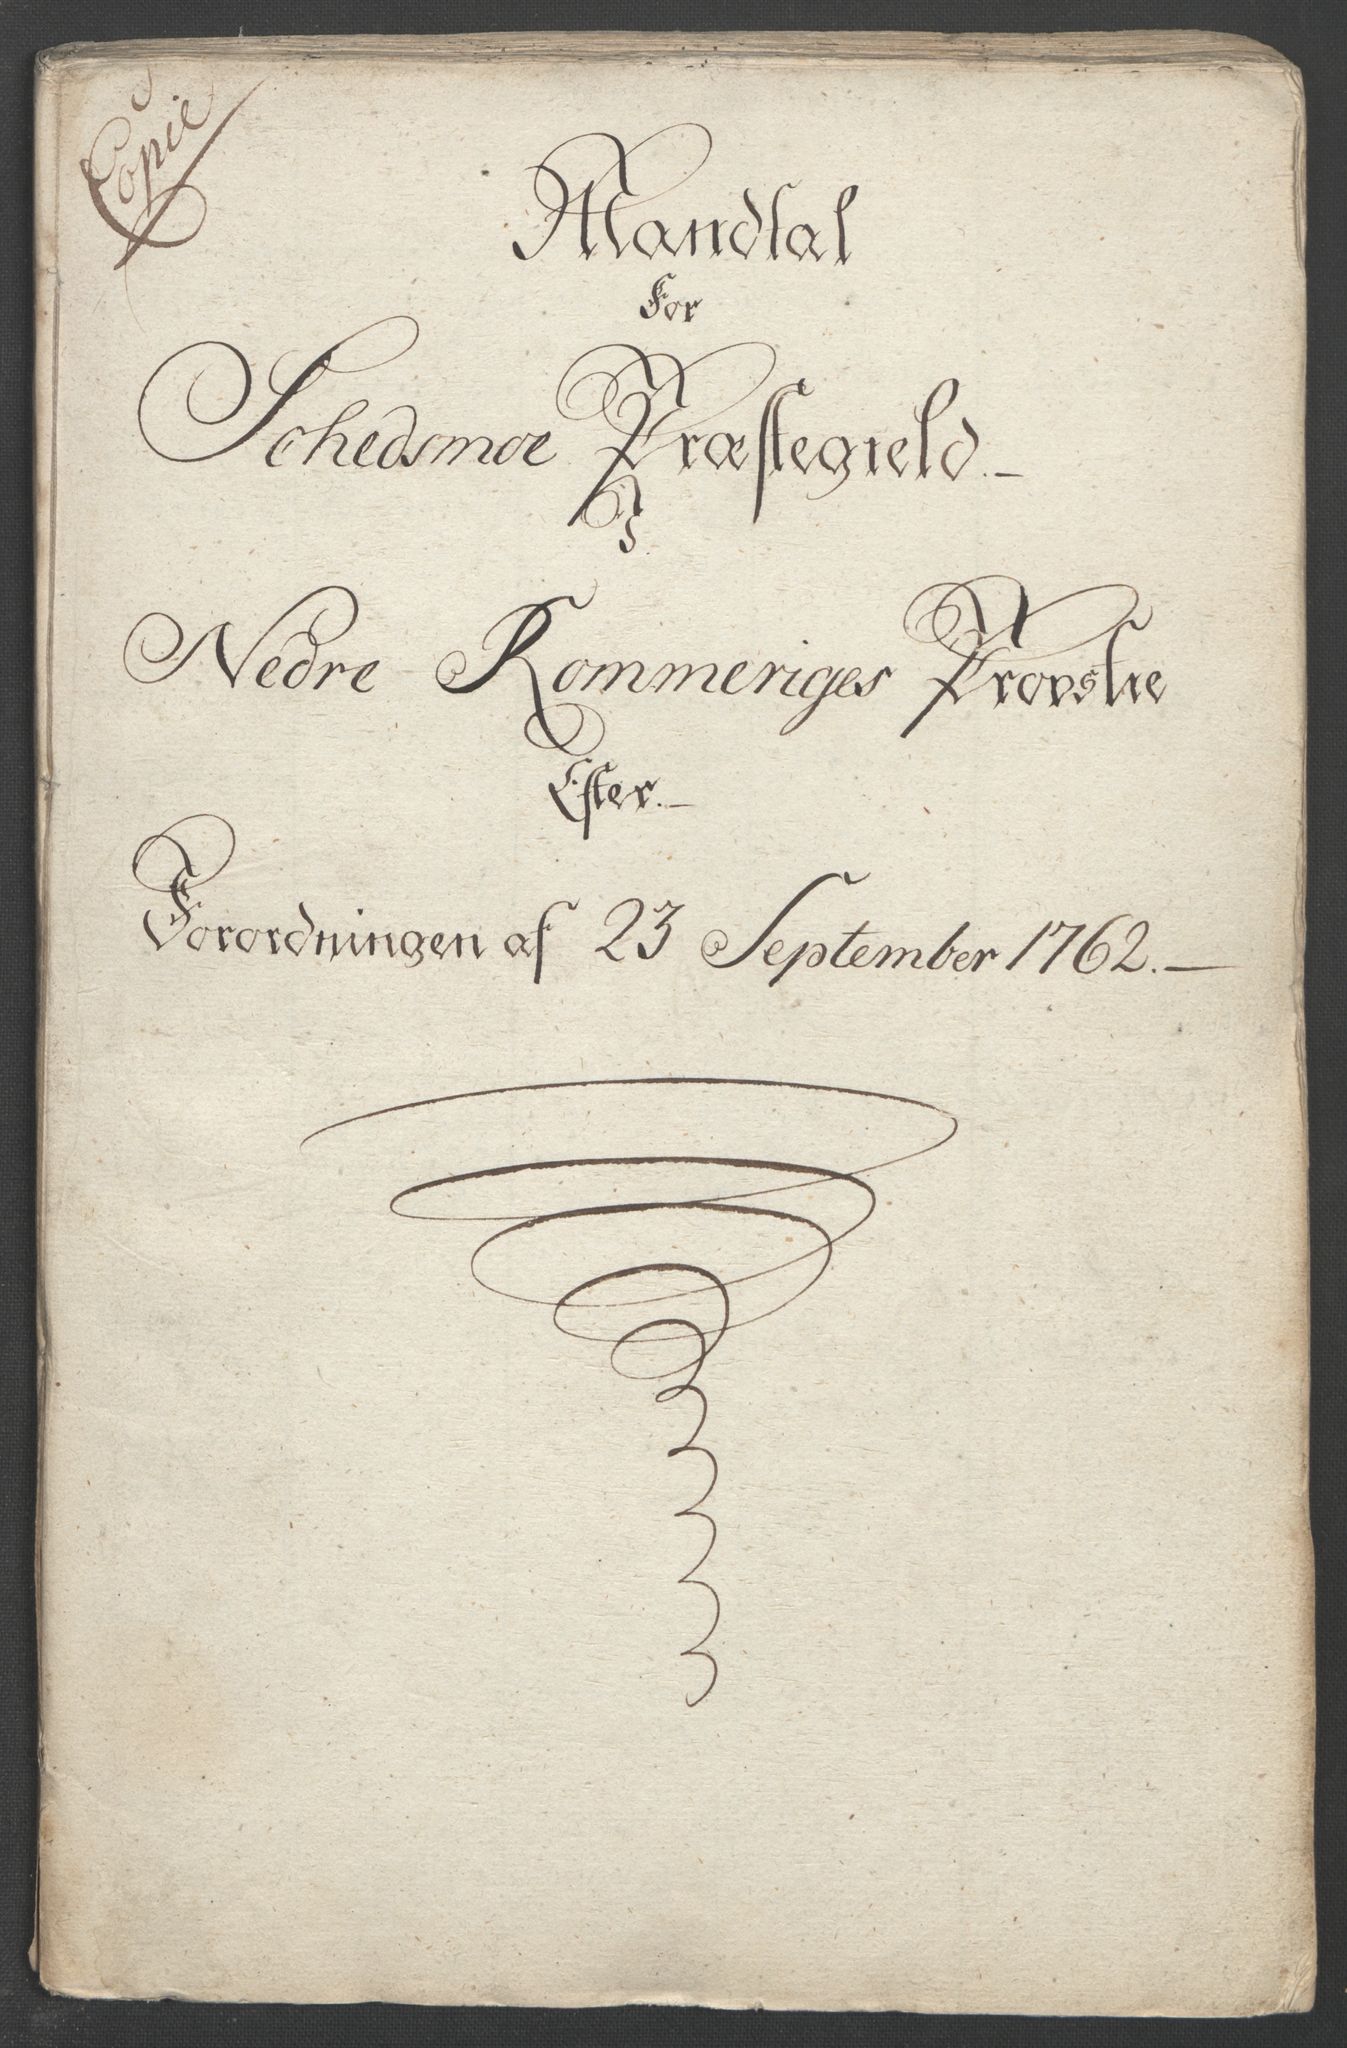 Copie
Mandtal
For
Schedsmoe Præstegield.
I
Nedre Rommeriges Provstie
Efter.
Forordningen af 23 September 1762.